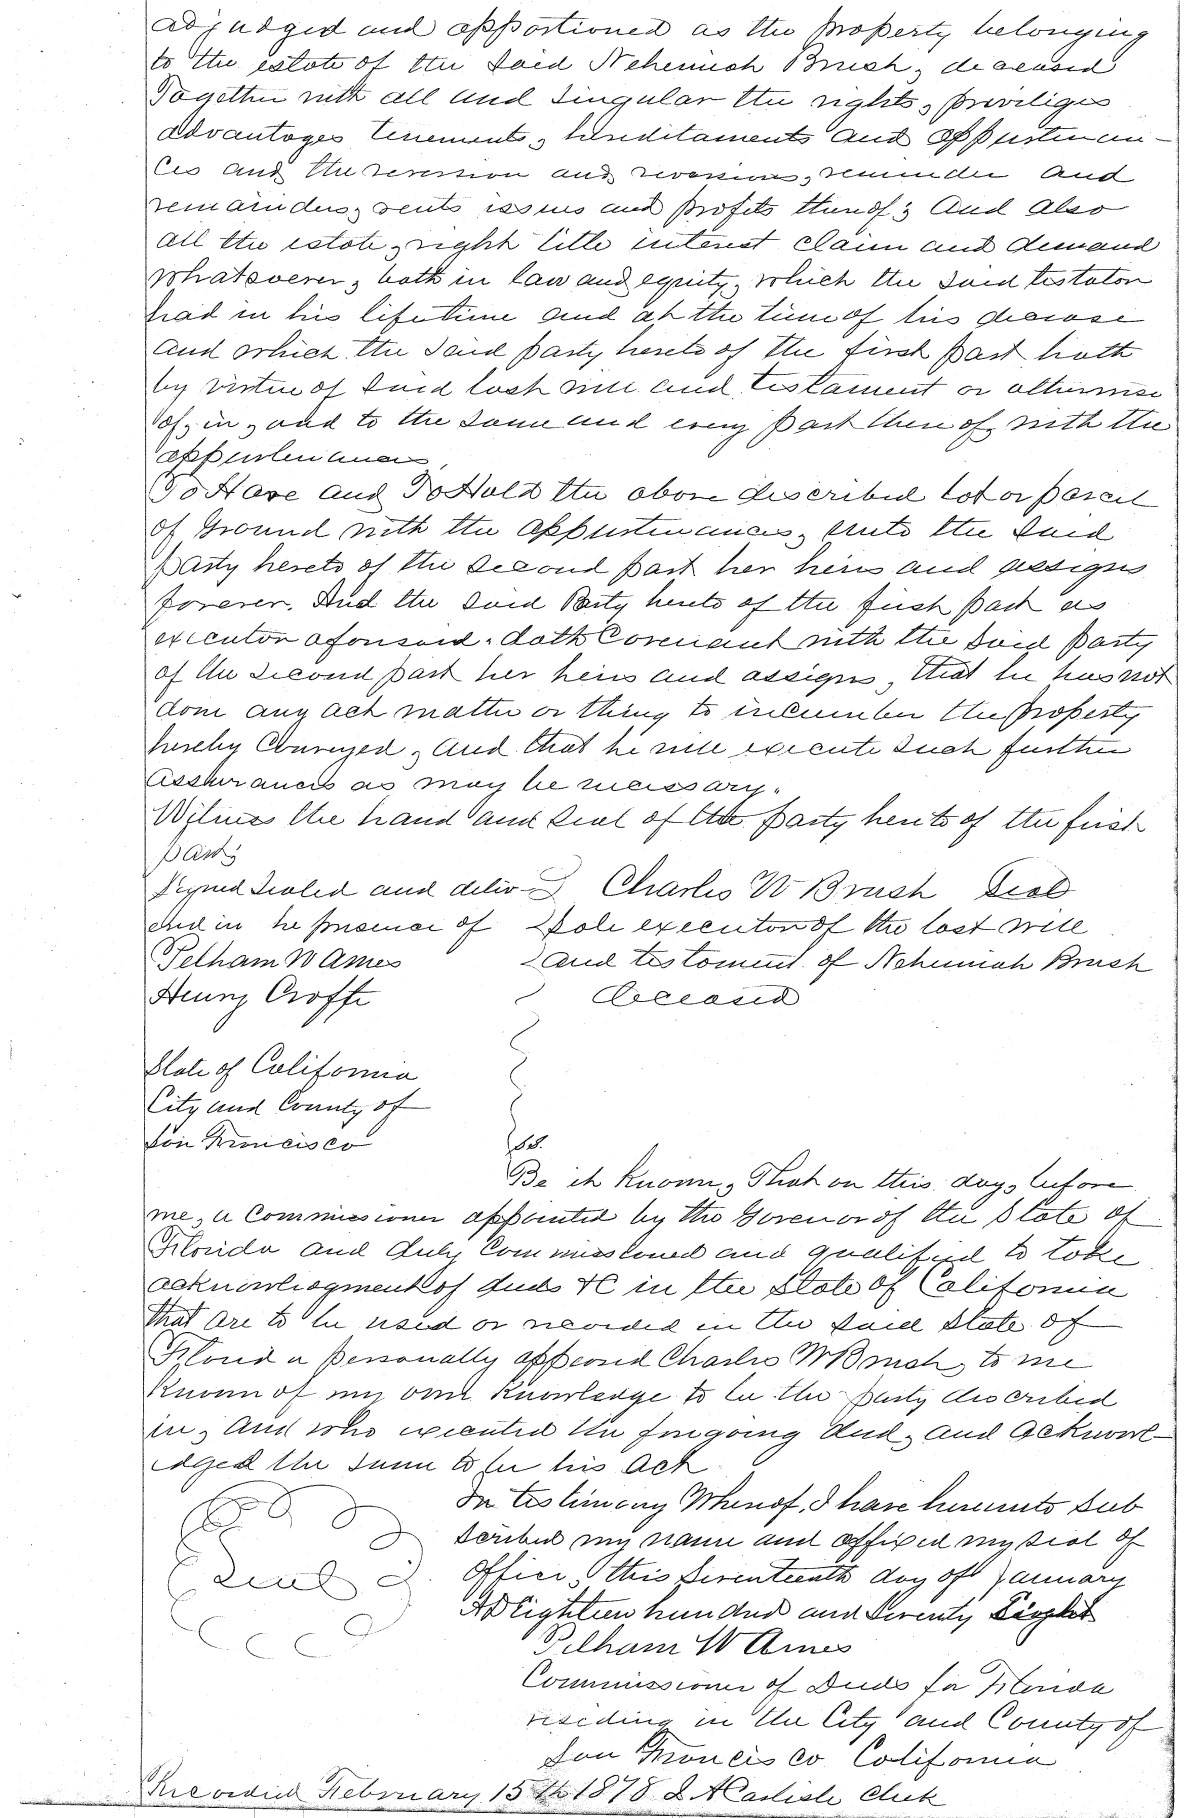 adjudged and apportioned as the property belonging
to the estate of the said Nehemiah Brush, deceased
Together with all and singular the rights, priviliges
advantages tenements, hereditaments and appurtenan-
ces and the reversion and reversions, remainder and
remainders, rents issues and profits thereof; And also
all the estate, right title interest claim and demand
whatsoever, both in law and equity, which the said testator
had in his lifetime and at the time of his decease
and which the said party hereto of the first part hath
by virtue of said last will and testament or otherwise
of, in, and to the same and every part there of, with the
appurtenances,
To Have and To Hold the above described lot or parcel
of ground with the appurtenances, unto the said
party hereto of the second part her heirs and assigns
forever. And the said Party hereto of the first part as
executor aforesaid. doth Covenant with the said party
of the second part her heirs and assigns, that he has not
done any act matter or thing to incumber the property
hereby Conveyed, and that he will execute such further
Assurances as may be necessary.
Witness the hand and seal of the party hereto of the first
part;
Signed Sealed and deliv- Charles W Brush Seal
ered in he presence of Sole executor of the last will
Pelham W Ames and testament of Nehemiah Brush
Henry Croffe deceased
State of California
City and County of
San Francisco ss.
Be it known, That on this day, before
me, a Commissioner appointed by the Governor of the State of
Florida and duly Commissioned and qualified to take
acknowledgment of deeds &C in the State of California
that are to be used or recorded in the said State of
Florida personally appeared Charles W Brush, to me
known of my own knowledge to be the party described
in, and who executed the foregoing deed, and acknowl-
edged the same to be his act
In testimony Whereof, I have hereunto sub
scribed my name and affixed my seal of
Seal
office, this Seventeenth day of January
AD Eighteen hundred and Seventy Eight
Pelham W Ames
Commissioner of Deeds for Florida
residing in the City and County of
San Francisco California
Recorded February 15th 1878 Carlisle Clerk